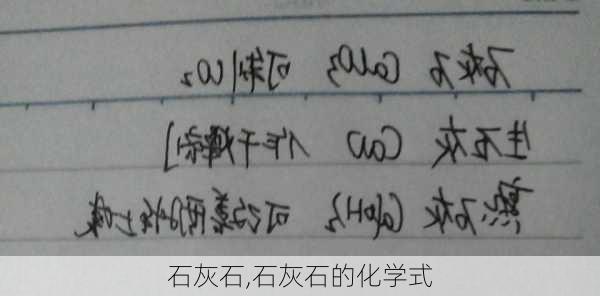 石灰石 CaCO₃ 可制CO₂
生石灰 CaO 作干燥剂
熟石灰 Ca(OH)₂ 可 土壤
石灰石,石灰石的化学式